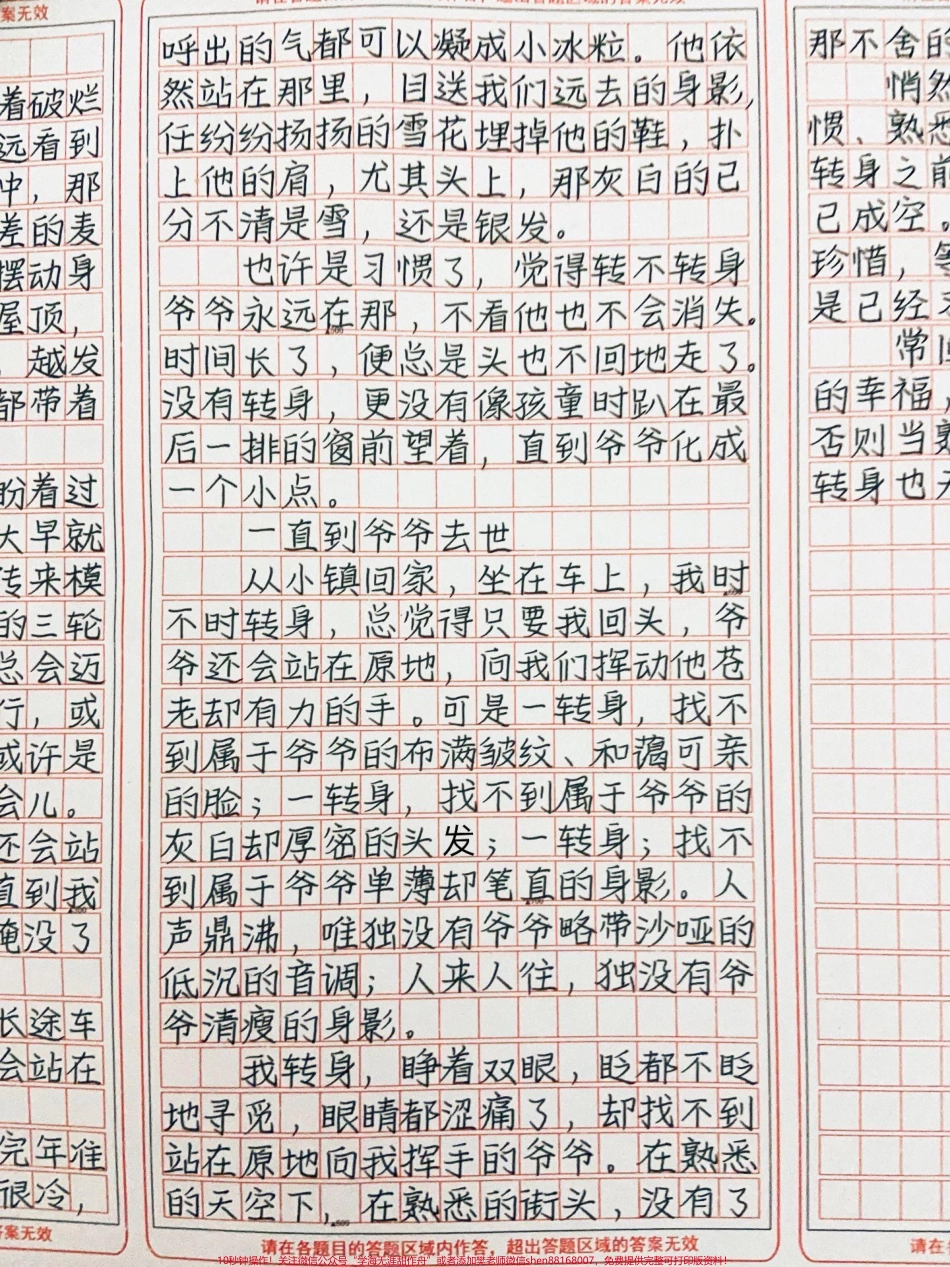 案无效
着破烂
远看到
中，那
差的麦
摆动身
屋顶，
越发
都带着
盼着过
大早就
传来模
的三轮
总会迈
行，或
或许是
会儿。
还会站
直到我
淹没了
长途车
会站在
完年准
很冷，
答案无效
呼出的气都可以凝成小冰粒。他依
然站在那里，目送我们远去的身影，
任纷纷扬扬的雪花埋掉他的鞋，扑
上他的肩，尤其头上，那灰白的已
分不清是雪，还是银发。
也许是习惯了，觉得转不转身
爷爷永远在那，不看他也不会消失。
时间长了，便总是头也不回地走了。
没有转身，更没有像孩童时趴在最
后一排的窗前望着，直到爷爷化成
一个小点。
一直到爷爷去世
从小镇回家，坐在车上，我时
不时转身，总觉得只要我回头，爷
爷还会站在原地，向我们挥动他苍
老却有力的手。可是一转身，找不
到属于爷爷的布满皱纹、和蔼可亲
的脸；一转身，找不到属于爷爷的
灰白却厚密的头发；一转身；找不
到属于爷爷单薄却笔直的身影。人
声鼎沸，唯独没有爷爷略带沙哑的
低沉的音调；人来人往，独没有爷
爷清瘦的身影。
我转身，睁着双眼，眨都不眨
地寻觅，眼睛都涩痛了，却找不到
站在原地向我挥手的爷爷。在熟悉
的天空下，在熟悉的街头，没有了
请在各题目的答题区域内作答，超出答题区域的答案无效
那不舍的
悄然
惯、熟悉
转身之前
已成空。
珍惜，等
是已经
常回
的幸福，
否则当
转身也
请在各
10秒钟操作！关注微信公众号“学海无涯甜作舟”或者添加樊老师微信shen88168007，免费提供完整可打印版资料！